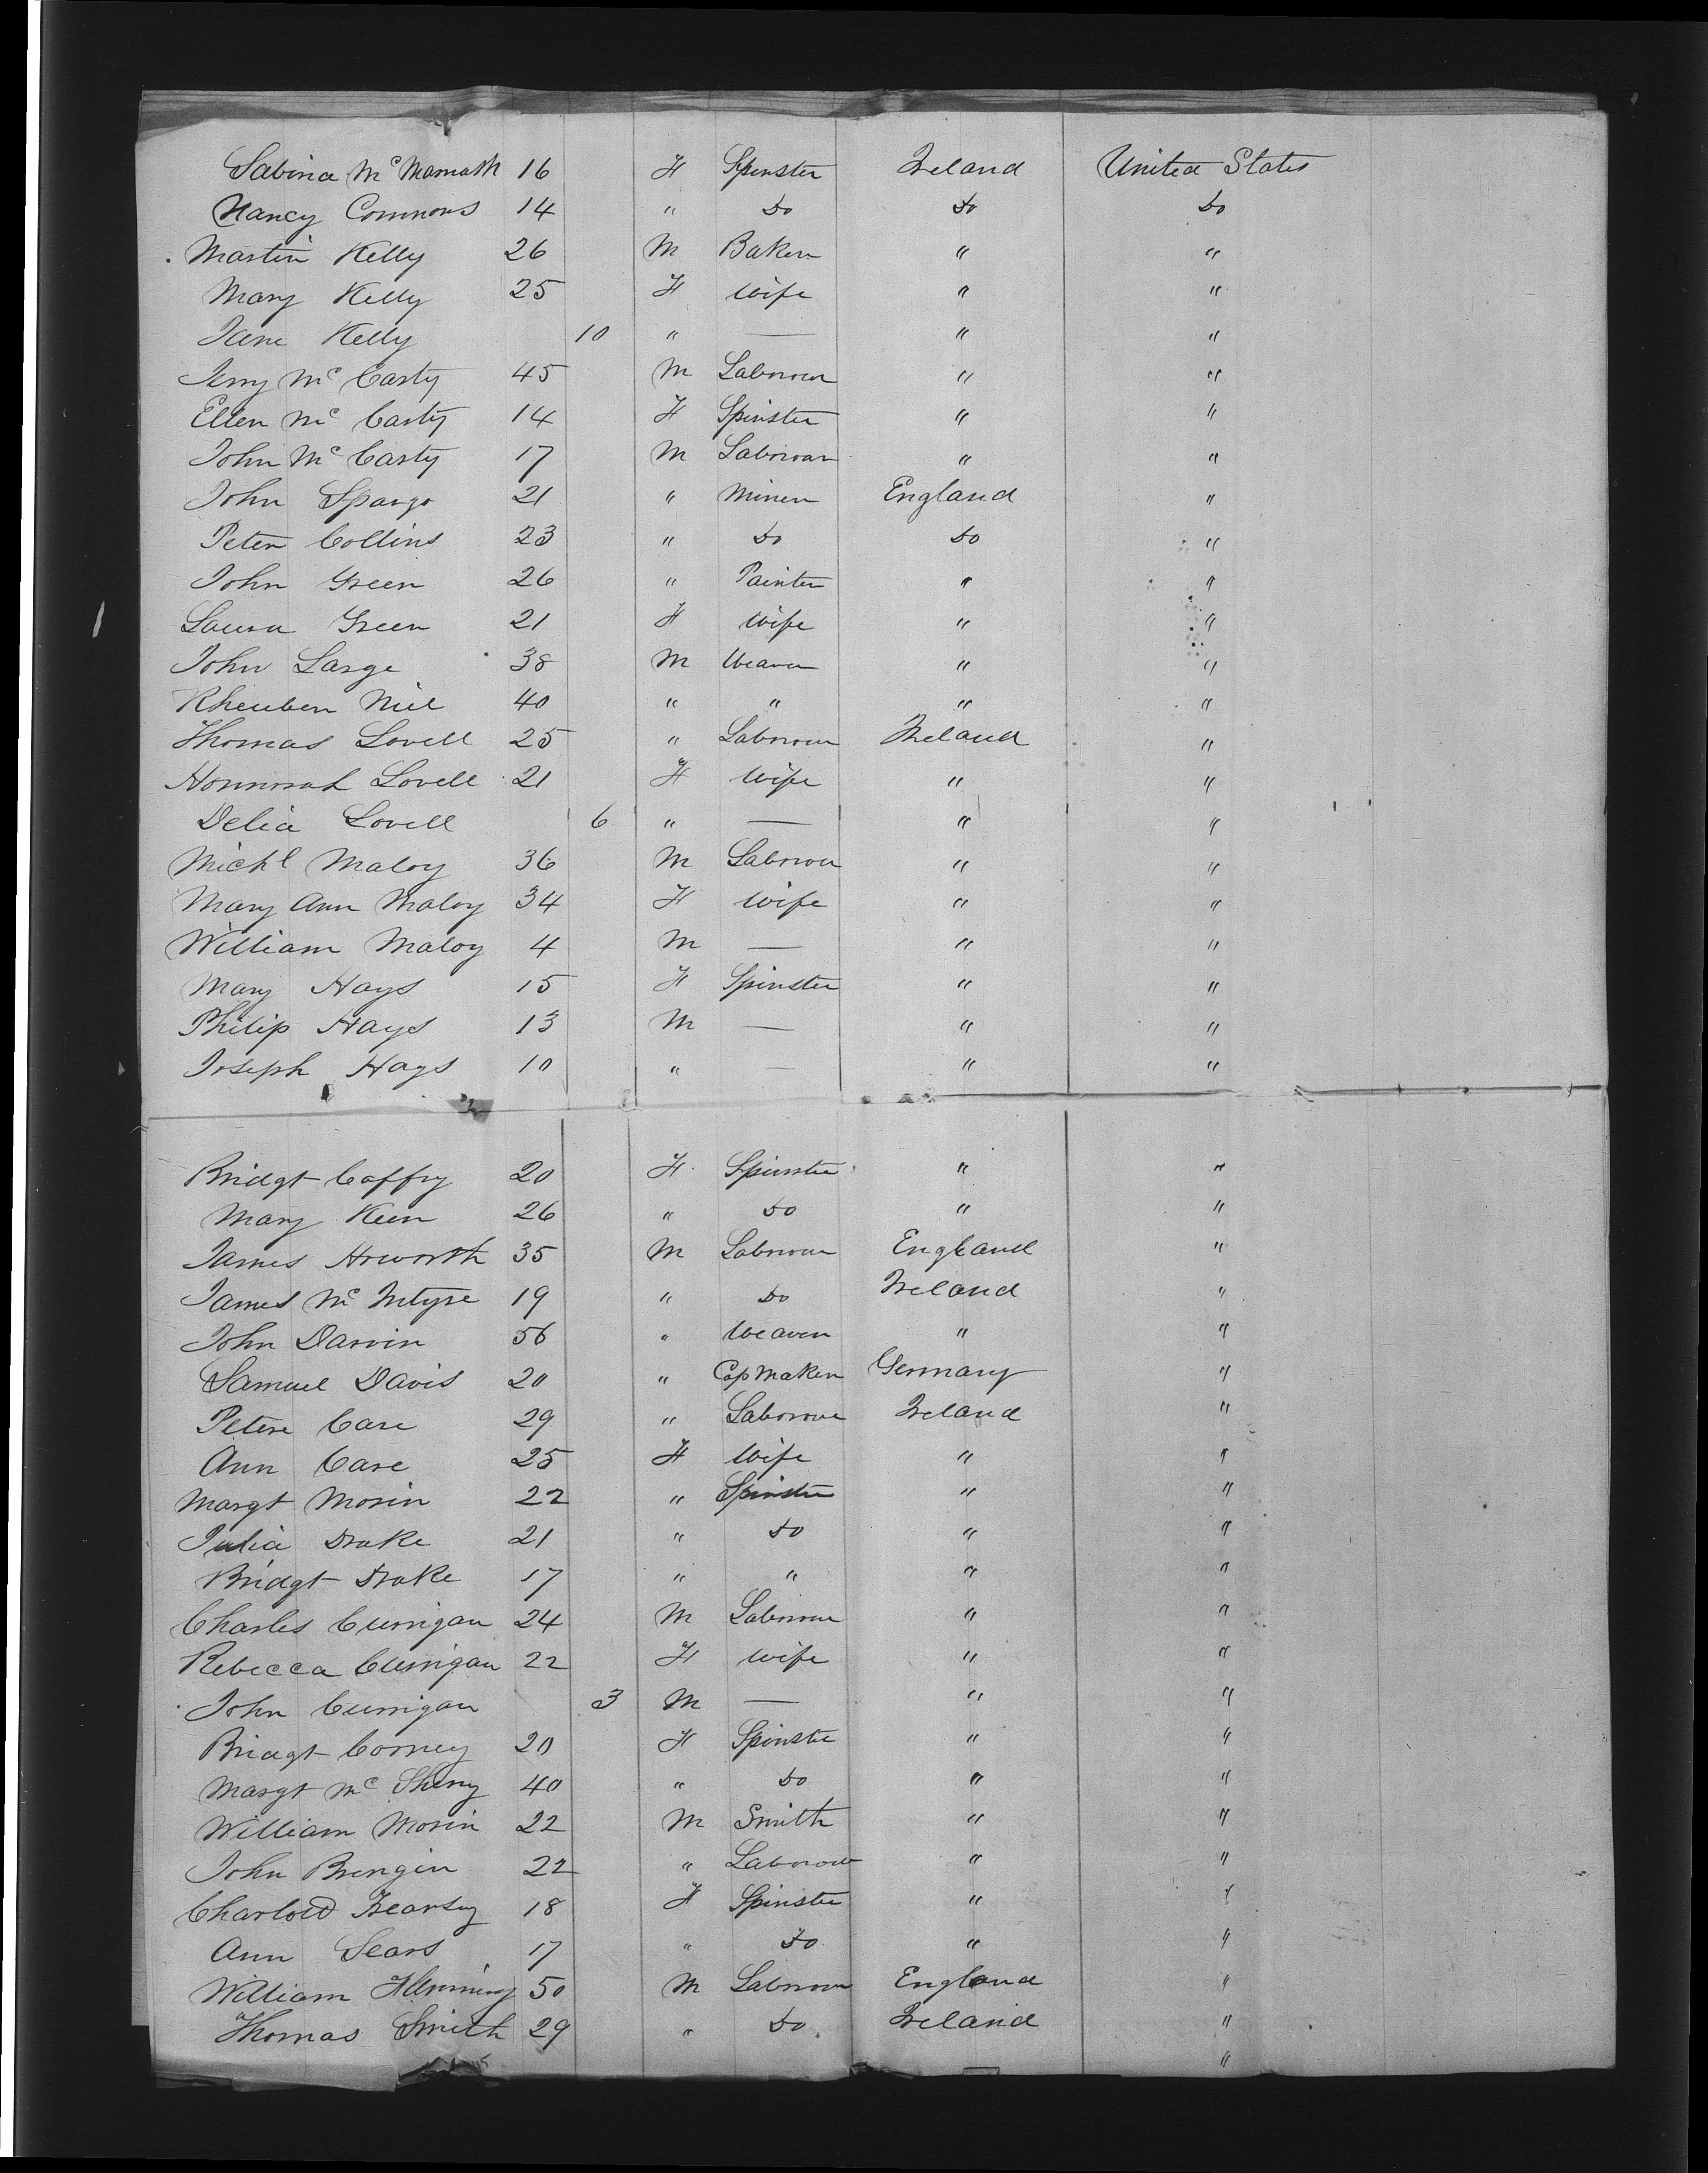 Sabina Mc Mamath 16 F Spinster Ireland United States
Nancy Commons 14 " Do Do Do
Martin Kelly 26 M Baker " "
Mary Kelly 25 F Wife " "
Jane Kelly 10 " — " "
Jerry Mc Carty 45 M Laborour " "
Ellen Mc Carty 14 F Spinster " "
John Mc Carty 17 M Laborour " "
John Spargo 21 " Miner England "
Peter Collins 23 " Do Do "
John Green 26 " Painter " "
Laura Green 21 F Wife " "
John Large 38 M Weaver " "
Rheuben Niel 40 " " " "
Thomas Lovell 25 " Laborour Ireland "
Honnorah Lovell 21 F Wife " "
Delia Lovell 6 " — " "
Michl Maloy 36 M Laborour " "
Mary Ann Maloy 34 F Wife " "
William Maloy 4 M — " "
Mary Hays 15 F Spinster " "
Philip Hays 13 M — " "
Joseph Hays 10 " — " "
Bridgt Caffry 20 F Spinster " "
Mary Keen 26 " Do " "
James Howorth 35 M Laborour England "
James Mc Intyre 19 " Do Ireland "
John Darvin 56 " Weaver " "
Samuel Davis 20 " Cap Maker Germany "
Peter Care 29 " Laborour Ireland "
Ann Care 25 F Wife " "
Margt Morin 22 " Spinster " "
Julia Drake 21 " Do " "
Bridgt Drake 17 " " " "
Charles Currigan 24 M Laborour " "
Rebecca Currigan 22 F Wife " "
John Currigan 3 M — " "
Bridgt Corney 20 F Spinster " "
Margt Mc Shiny 40 " Do " "
William Morin 22 M Smith " "
John Brengin 22 " Laborour " "
18 F Spinster " "
Ann Sears 17 " Do " "
William Flemming 50 M Laborour England "
Thomas Smith 29 " Do Ireland "
"